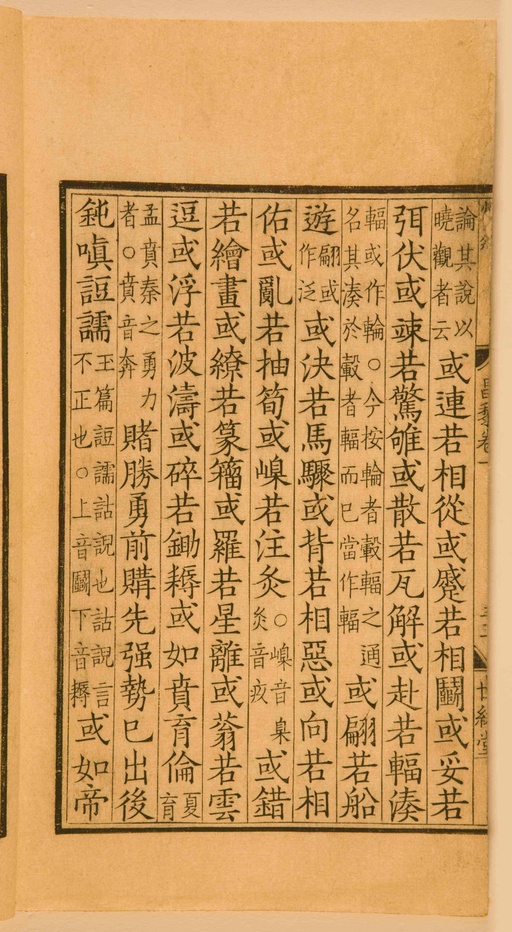 論其說以
曉觀者云
或連若相從或蹙若相鬬或妥若
弭伏或竦若驚雊或散若瓦解或赴若輻湊
輻或作輪○今按輪者轂輻之通
名其湊於轂者輻而已當作輻
或翩若船
遊
翩或
作泛
或決若馬驟或背若相惡或向若相
佑或亂若抽筍或嵲若注灸
○嵲音臬
灸音疚
或錯
若繪畫或繚若篆籀或羅若星離或蓊若雲
逗或浮若波濤或碎若鋤耨或如賁育倫
夏
育
孟賁秦之勇力
者○賁音奔
賭勝勇前購先强勢已出後
鈍嗔䛠譳
玉篇䛠譳詀誽也詀誽言
不正也○上音鬬下音耨
或如帝
昌黎卷一
世綵堂